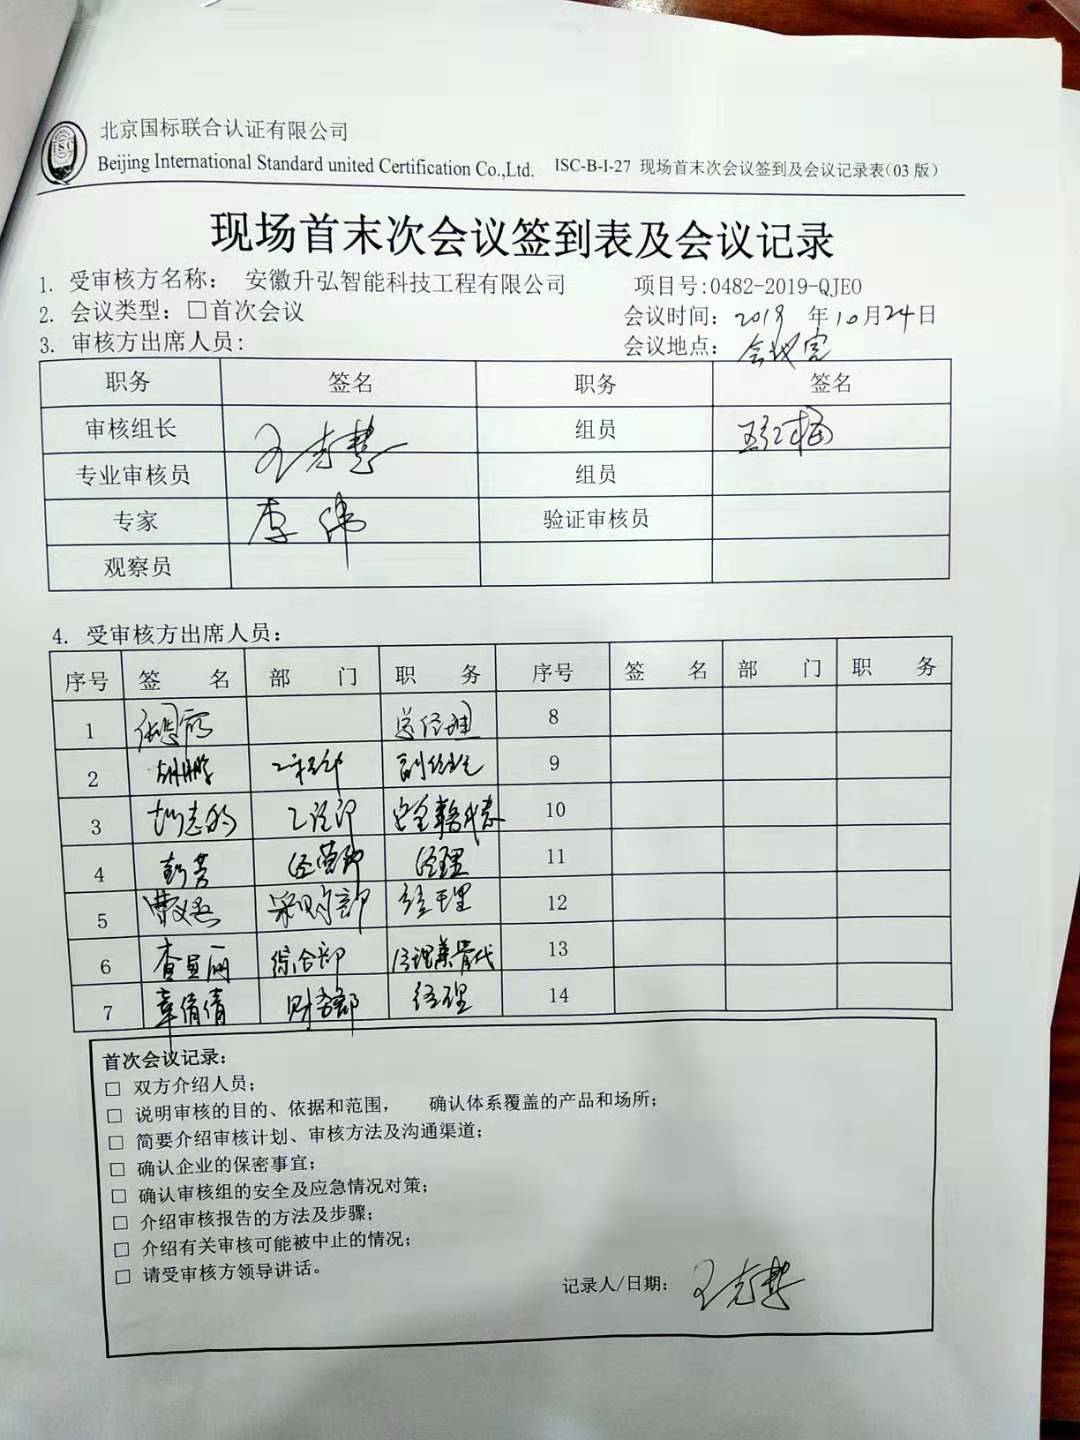 北京国标联合认证有限公司
Beijing International Standard united Certification Co.,Ltd. ISC-B-I-27 现场首末次会议签到及会议记录表(03版)
现场首末次会议签到表及会议记录
1. 受审核方名称: 安徽升弘智能科技工程有限公司 项目号:0482-2019-QJEO
2. 会议类型:□首次会议 会议时间: 2019 年 10 月 24 日
3. 审核方出席人员: 会议地点: 会议室
职务 签名 职务 签名
审核组长 组员
专业审核员 组员
专家 李伟 验证审核员
观察员
4. 受审核方出席人员:
序号 签 名 部 门 职 务 序号 签 名 部 门 职 务
1 总经理 8
2 工程部 副总经理 9
3 工程部 10
4 彭芳 经营部 经理 11
5 采购部 经理 12
6 综合部 13
7 章倩倩 财务部 经理 14
首次会议记录:
□ 双方介绍人员;
□ 说明审核的目的、依据和范围, 确认体系覆盖的产品和场所;
□ 简要介绍审核计划、审核方法及沟通渠道;
□ 确认企业的保密事宜;
□ 确认审核组的安全及应急情况对策;
□ 介绍审核报告的方法及步骤;
□ 介绍有关审核可能被中止的情况;
□ 请受审核方领导讲话。
记录人/日期: